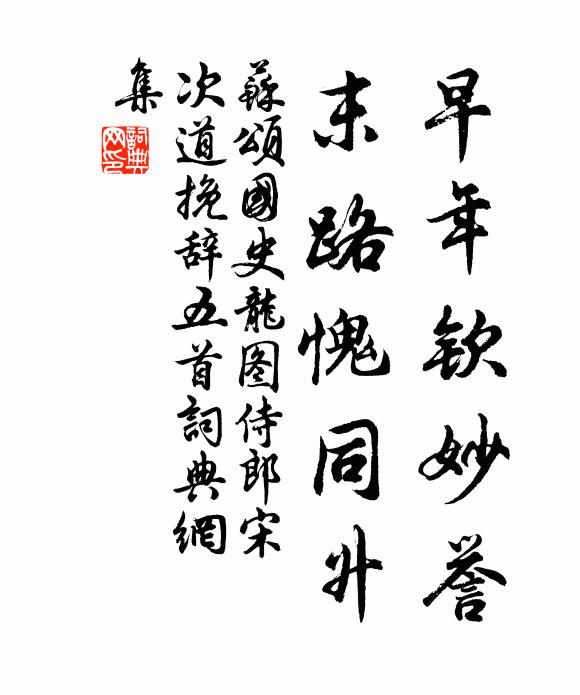 早年欽妙誉
末路愧同升
蘇頌國史龍图侍郎宋
次道挽辞五首詞典網
集
詞典
网印